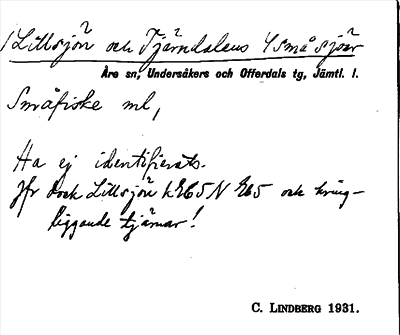 Lillsjön och Tjärndalens 4 små sjöar
Åre sn, Undersåkers och Offerdals tg, Jämtl. l.
Småfiske ml,
Ha ej identifierats.
Jfr dock Lillsjön k X65 N X65 och kring-
liggande tjärnar!
C. LINDBERG 1931.